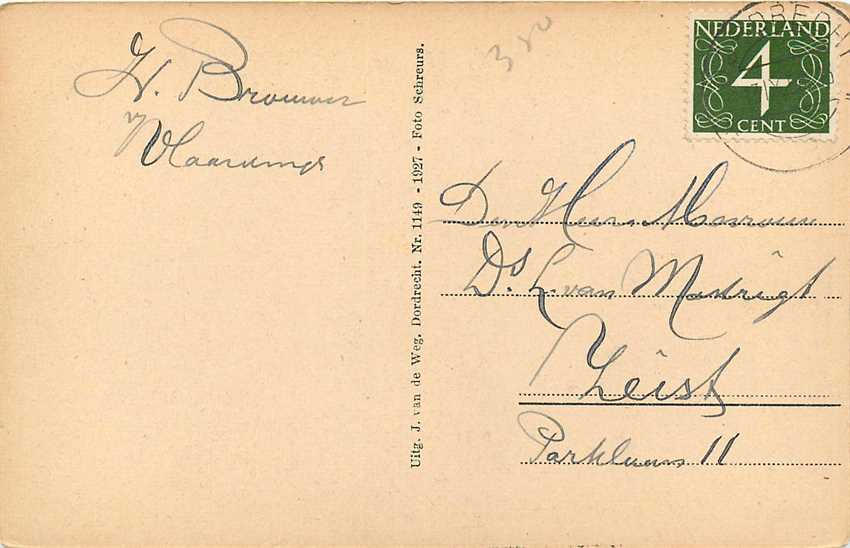 H. Brouwer
Vlaardingen
Uitg. J. van de Weg. Dordrecht. Nr. 1149 - 1927 - Foto Schreurs.
380
NEDERLAND
4
CENT
Den Heer. Mevrouw
Ds. L. van Mastrigt
Zeist
Parklaan 11